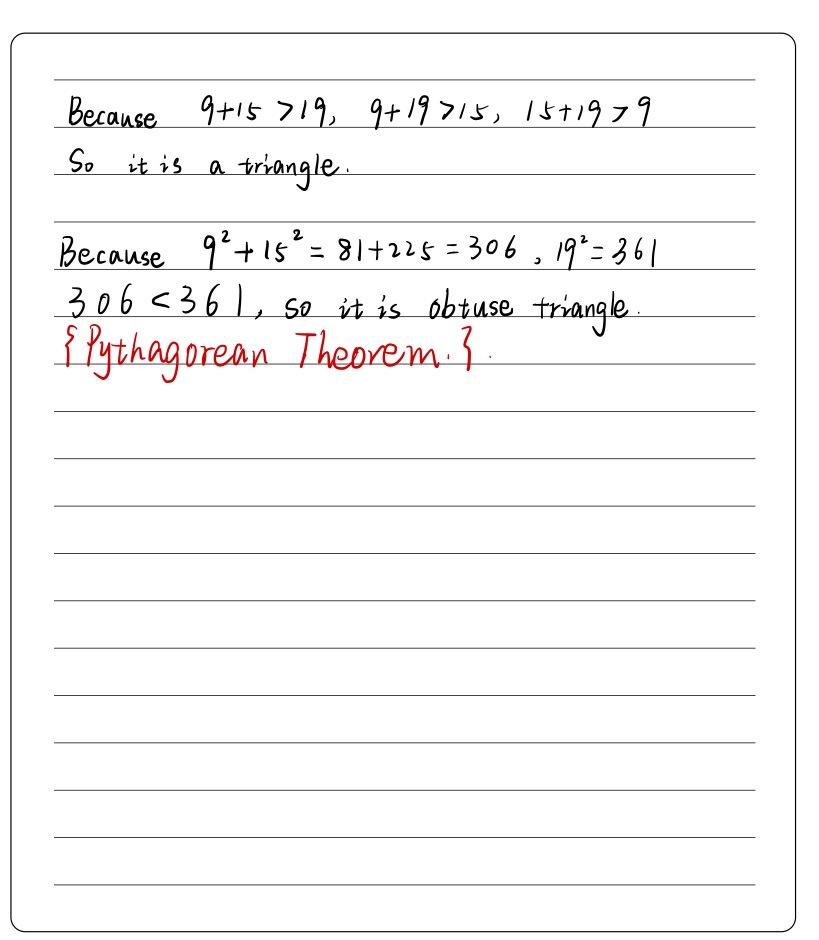 Because 9+15 >19, 9+19 >15, 15+19 > 9
So it is a triangle.
Because 9²+15² = 81+225 = 306 , 19² = 361
306 < 361, so it is obtuse triangle.
{Pythagorean Theorem.}